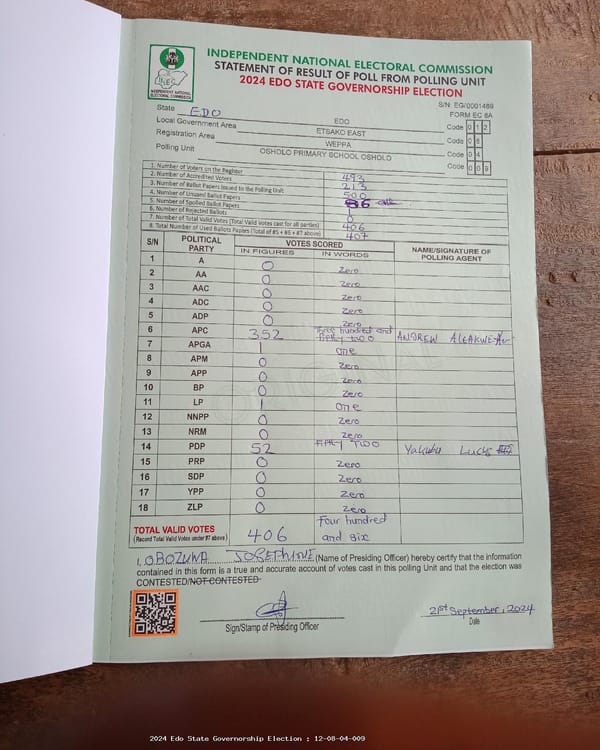 INDEPENDENT NATIONAL ELECTORAL COMMISSION
STATEMENT OF RESULT OF POLL FROM POLLING UNIT
2024 EDO STATE GOVERNORSHIP ELECTION
INEC
INDEPENDENT NATIONAL ELECTORAL COMMISSION
S/N: EG/0001489
FORM EC 8A
State EDO
Local Government Area EDO Code 012
Registration Area ETSAKO EAST Code 08
WEPPA Code 04
Polling Unit OSHOLO PRIMARY SCHOOL OSHOLO Code 009
1. Number of Voters on the Register 493
2. Number of Accredited Voters 213
3. Number of Ballot Papers Issued to the Polling Unit 500
4. Number of Unused Ballot Papers 86
5. Number of Spoiled Ballot Papers 1
6. Number of Rejected Ballots 0
7. Number of Total Valid Votes (Total Valid Votes cast for all parties) 406
8. Total Number of Used Ballots Papers (Total of #5 + #6 + #7 above) 407
S/N POLITICAL PARTY VOTES SCORED NAME/SIGNATURE OF POLLING AGENT
IN FIGURES IN WORDS
1 A 0 Zero
2 AA 0 Zero
3 AAC 0 Zero
4 ADC 0 Zero
5 ADP 0 Zero
6 APC 352 Three hundred and fifty two ANDREW
7 APGA 1 one
8 APM 0 Zero
9 APP 0 Zero
10 BP 0 Zero
11 LP 1 one
12 NNPP 0 Zero
13 NRM 0 Zero
14 PDP 52 Fifty Two Yakubu Lucky
15 PRP 0 Zero
16 SDP 0 Zero
17 YPP 0 Zero
18 ZLP 0 Zero
TOTAL VALID VOTES 406 Four hundred and six
(Record Total Valid Votes under #7 above)
I, OBOZUWA JOSEPHINE (Name of Presiding Officer) hereby certify that the information
contained in this form is a true and accurate account of votes cast in this polling Unit and that the election was
CONTESTED/NOT CONTESTED
21st September, 2024
Sign/Stamp of Presiding Officer Date
2024 Edo State Governorship Election : 12-08-04-009